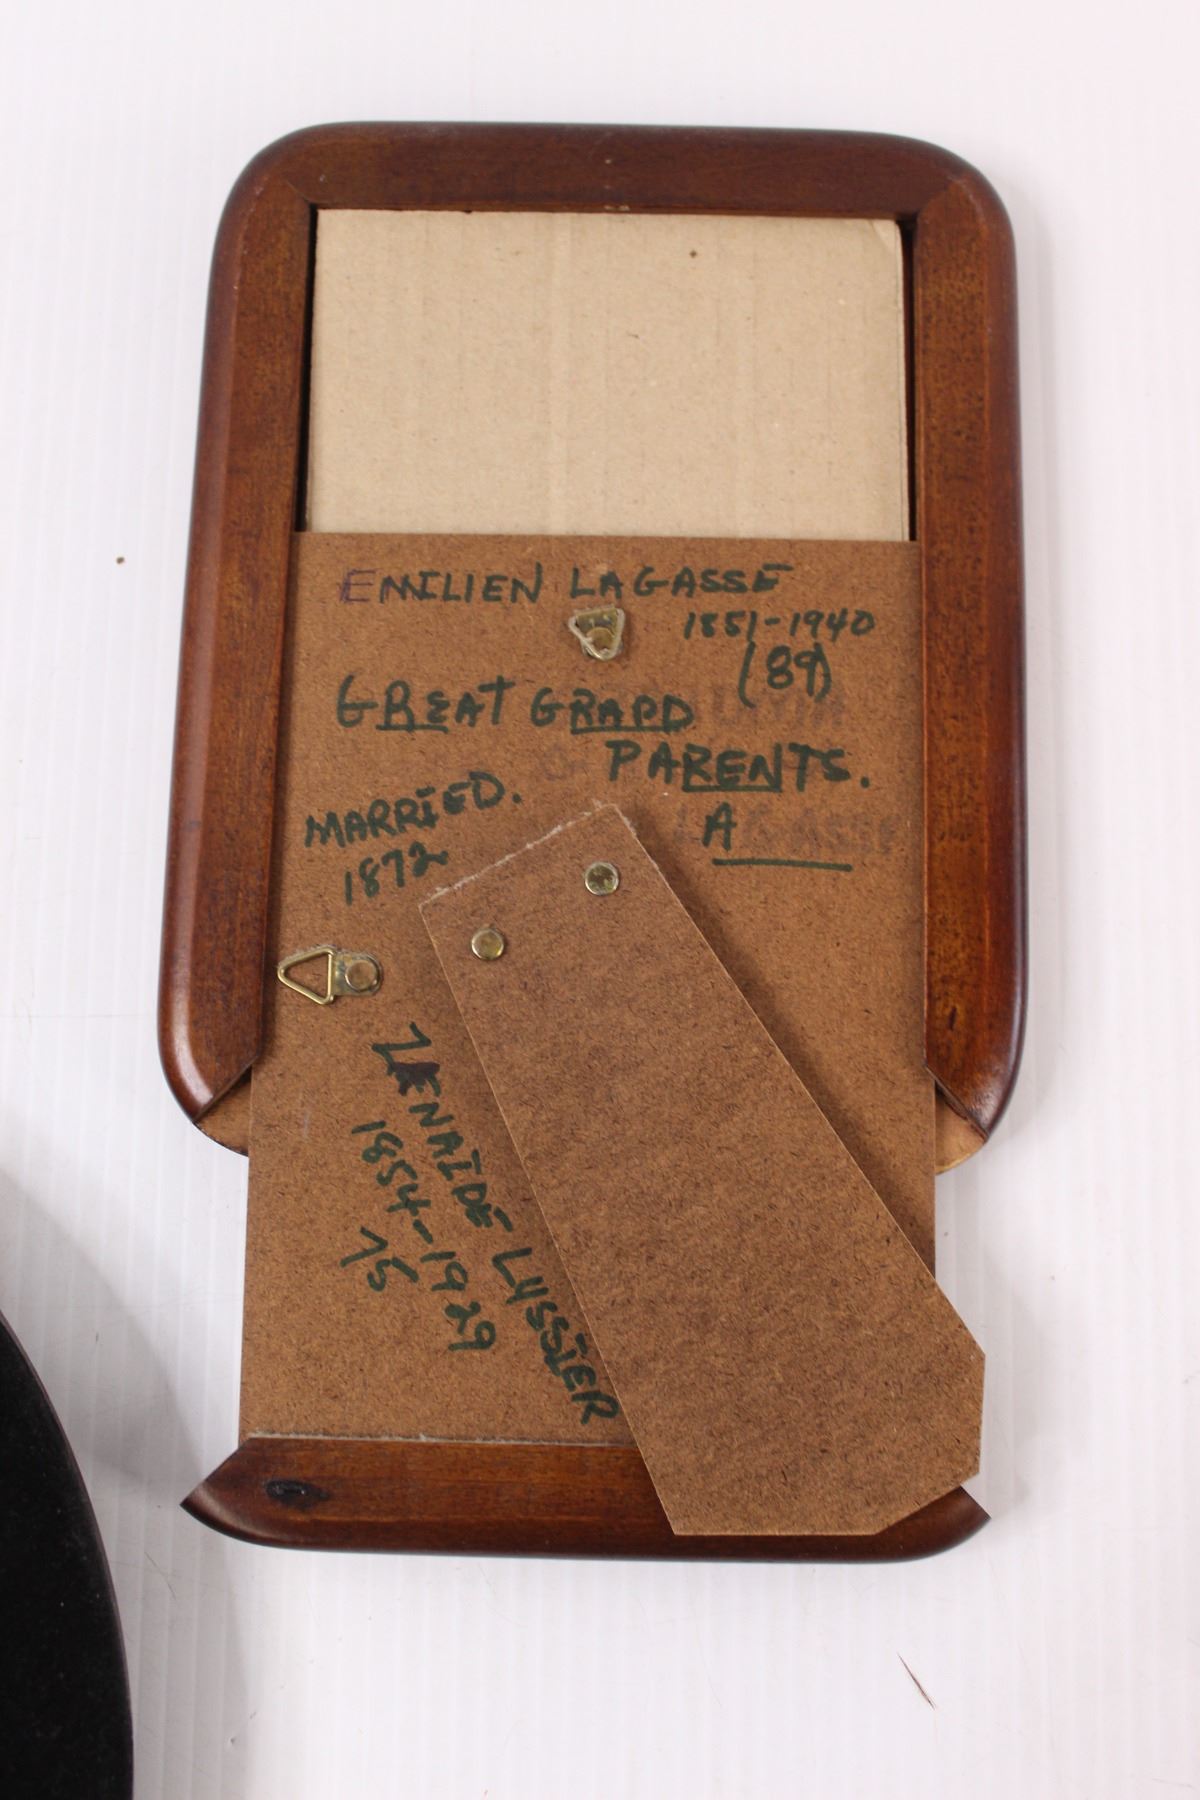 EMILIEN LAGASSE
1851-1940
(89)
GREAT GRAPD
PARENTS.
A
MARRIED.
1872
ZENAIDE LUSSIER
1854-1929
75